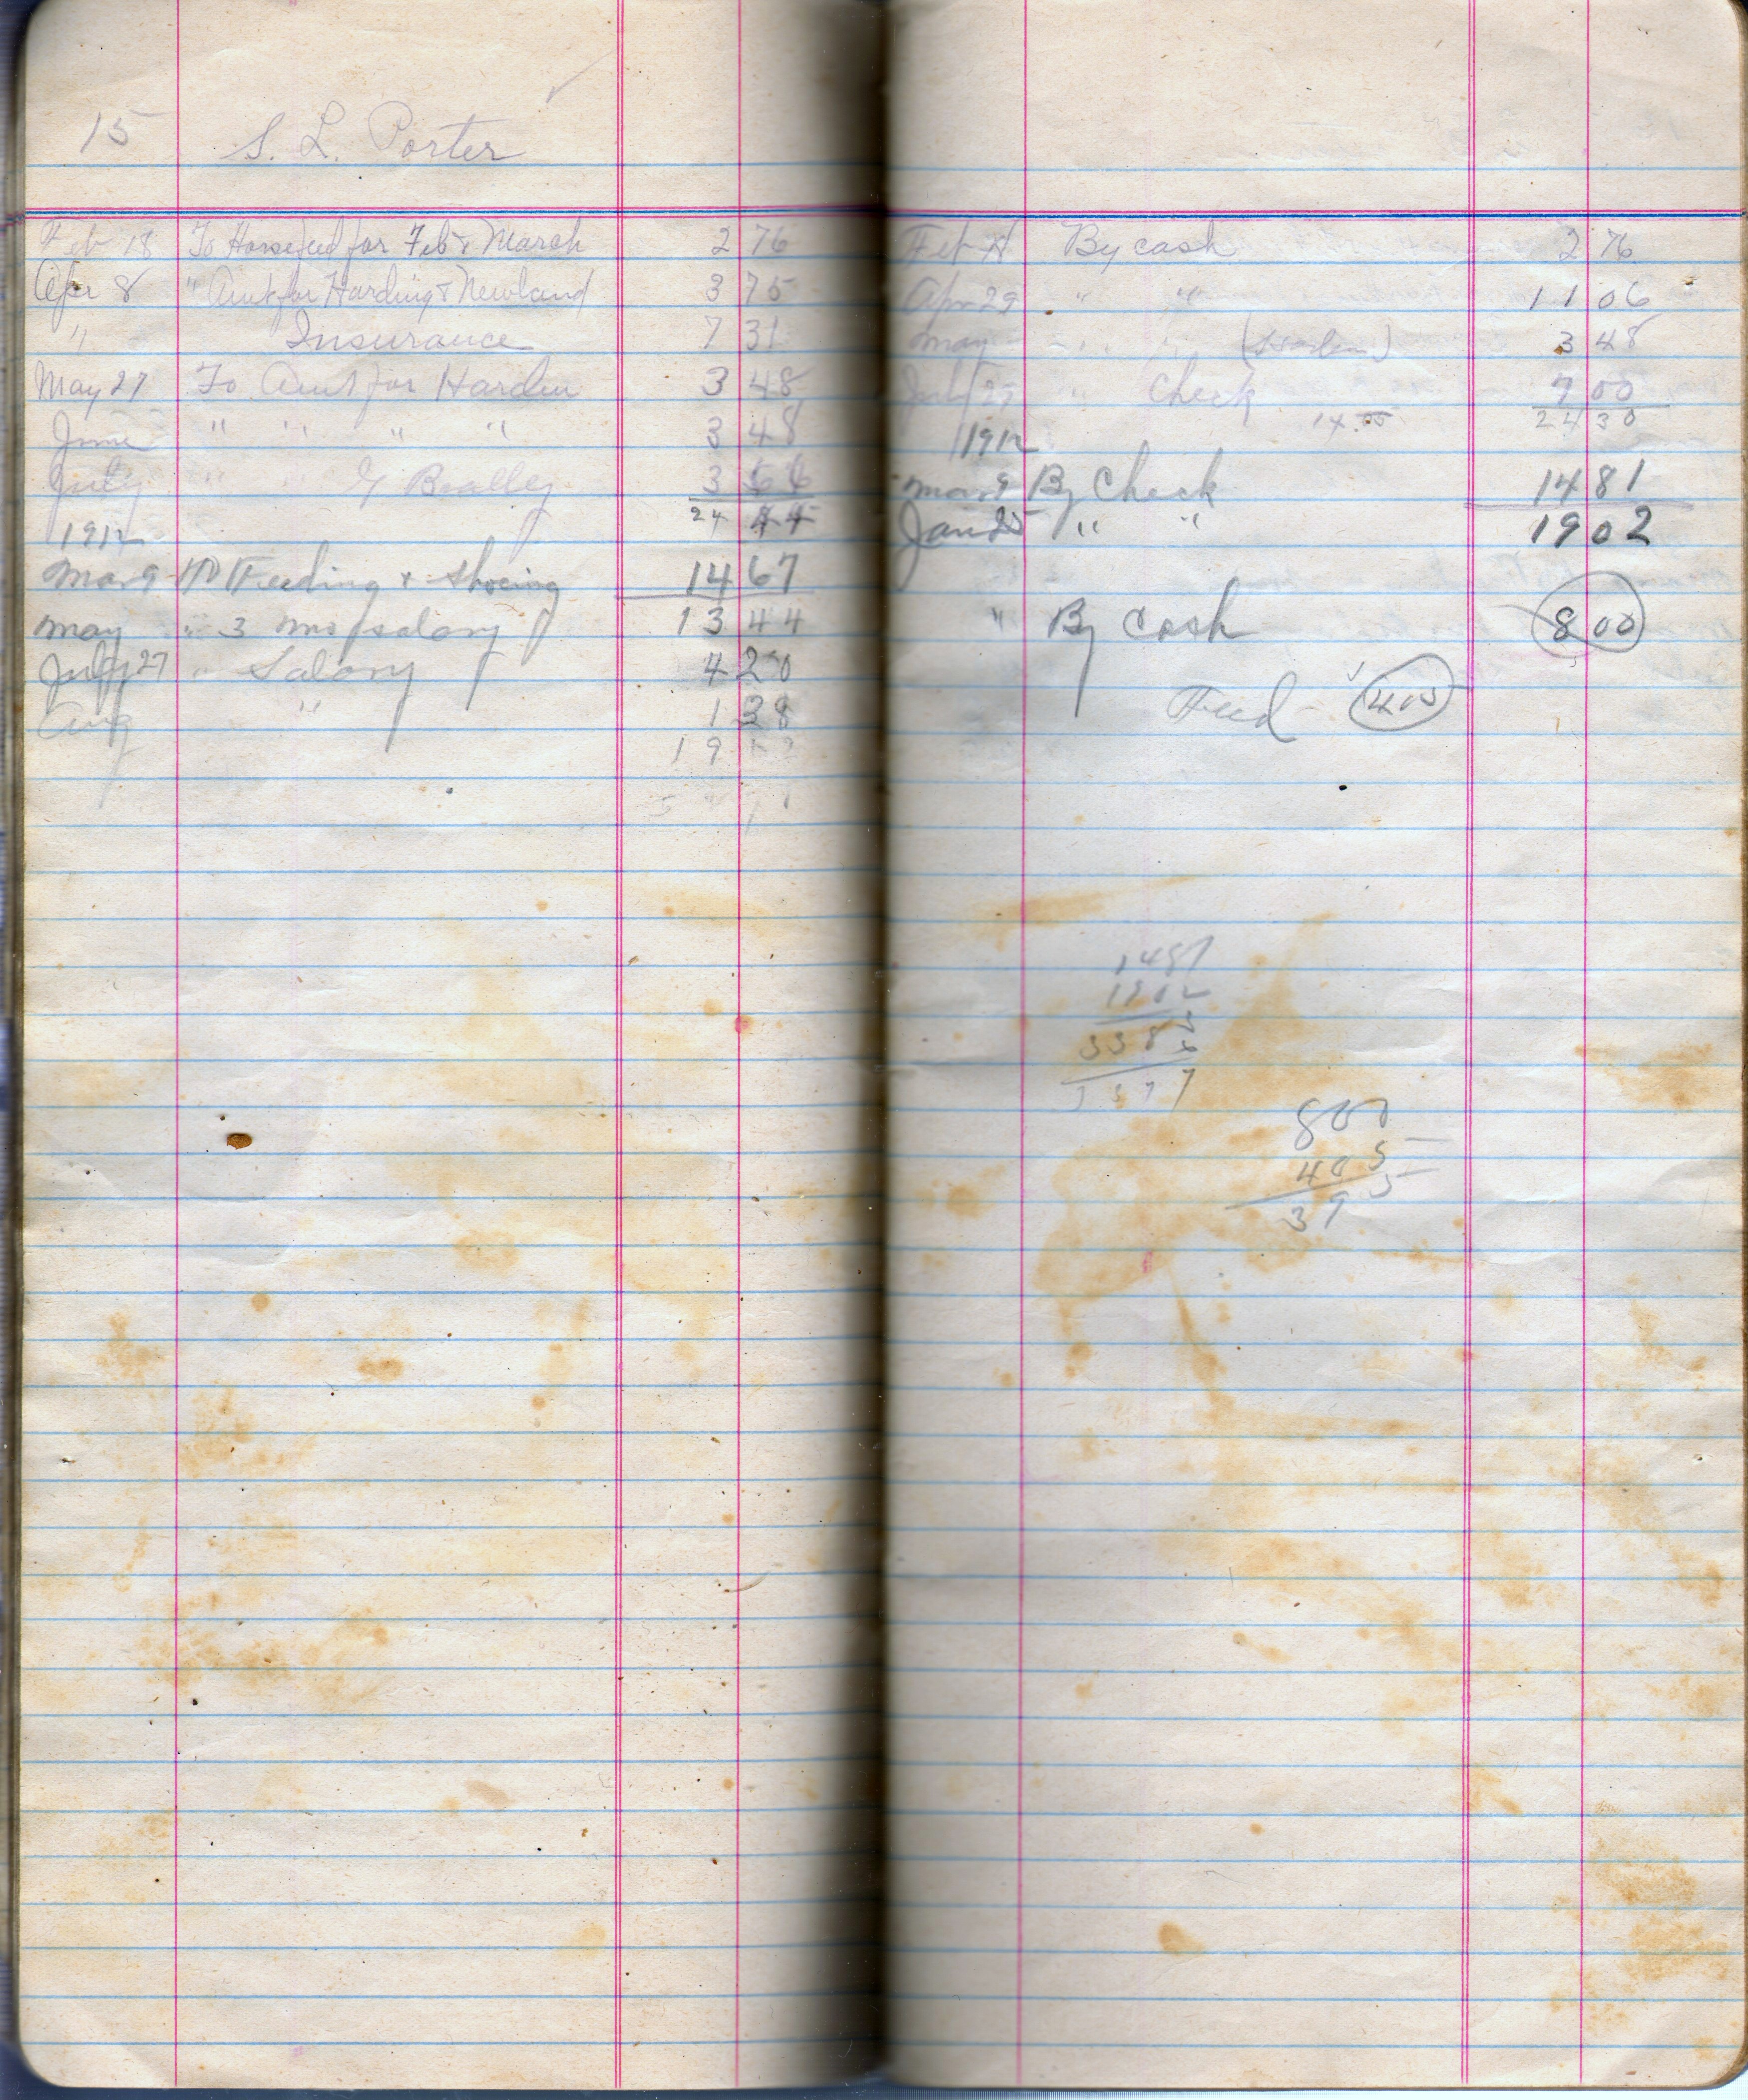 15 S. L. Porter
Feb 18 To Horsefeed for Feb & March 2 76
Apr 8 " Amt for Harding & Newland 3 75
" Insurance 7 31
May 27 To Amt for Harden 3 48
June " " " " 3 48
July " " Bradley 3 66
24 44
1912
Mar 9 To Feeding & Shoeing 14 67
May " 3 mos salary 13 44
July 27 " Salary 4 20
Aug " 1 38
19
Feb By cash 2 76
Apr 29 " " 11 06
May " " (Harden) 3 48
July 27 " Check 7 00
24 30
1912
Mar 9 By Check 14 81
Jan 25 " " 19 02
" By Cash 8 00
Feed 4 05
1481
1902
3383
800
405
395